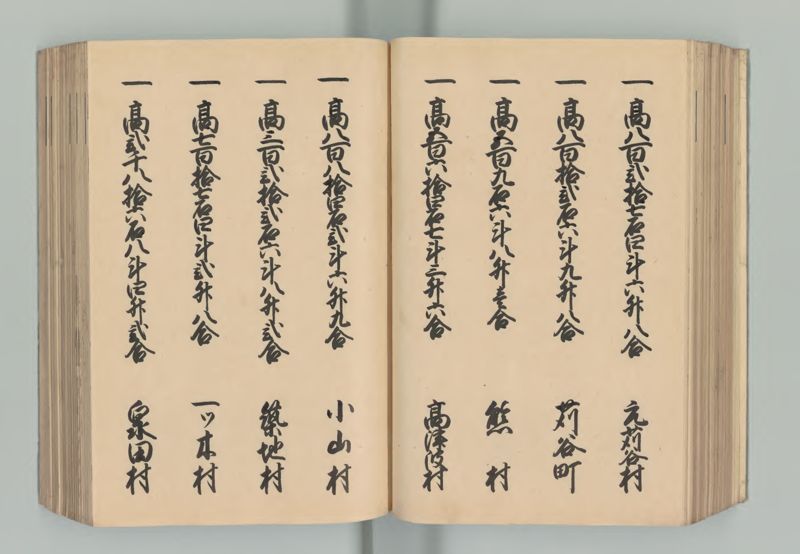 一 高八百弐拾七石四斗六升八合 元苅谷村
一 高八百拾弐石六斗九升八合 苅谷町
一 高五百九石六斗八升壱合 熊村
一 高五百六拾四石七斗三升六合 高津波村
一 高八百八拾四石弐斗六升九合 小山村
一 高三百弐拾弐石六斗八升弐合 築地村
一 高七百拾七石四斗弐升八合 一ツ木村
一 高弐千八拾六石八斗四升弐合 泉田村